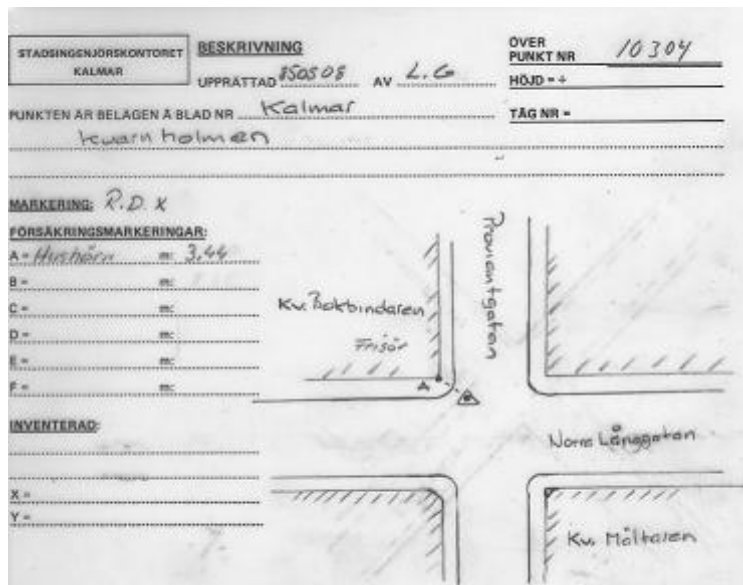 STADSINGENJÖRSKONTORET
KALMAR
BESKRIVNING
UPPRÄTTAD 850508 AV L.G
ÖVER
PUNKT NR 10304
HÖJD = +
TÅG NR =
PUNKTEN ÄR BELÄGEN Å BLAD NR Kalmar
Kvarnholmen
MARKERING: R.D. X
FÖRSÄKRINGSMARKERINGAR:
A = Hushörn m: 3,44
B = m:
C = m:
D = m:
E = m:
F = m:
INVENTERAD:
X =
Y =
Proviantgatan
Kv. Bokbindaren
Frisör
A
Norra Långgatan
Kv. Mältaren